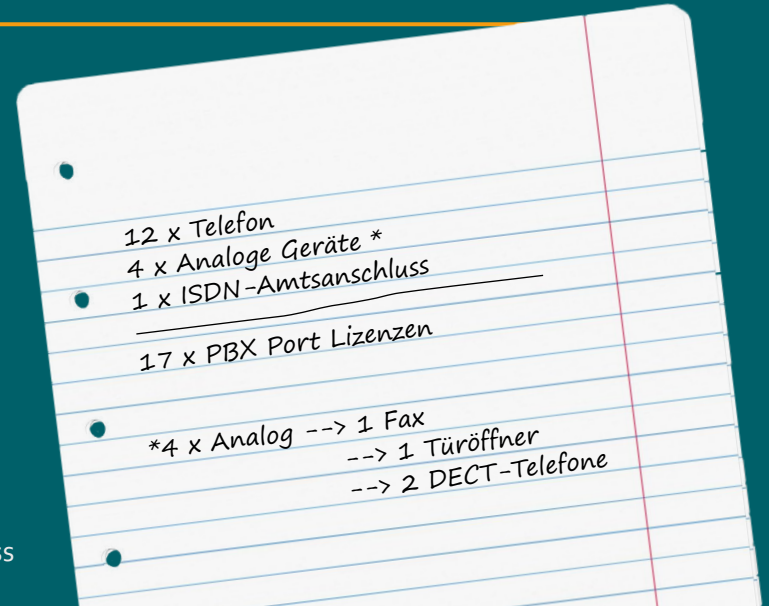 12 x Telefon
4 x Analoge Geräte *
1 x ISDN-Amtsanschluss
17 x PBX Port Lizenzen
*4 x Analog --> 1 Fax
--> 1 Türöffner
--> 2 DECT-Telefone